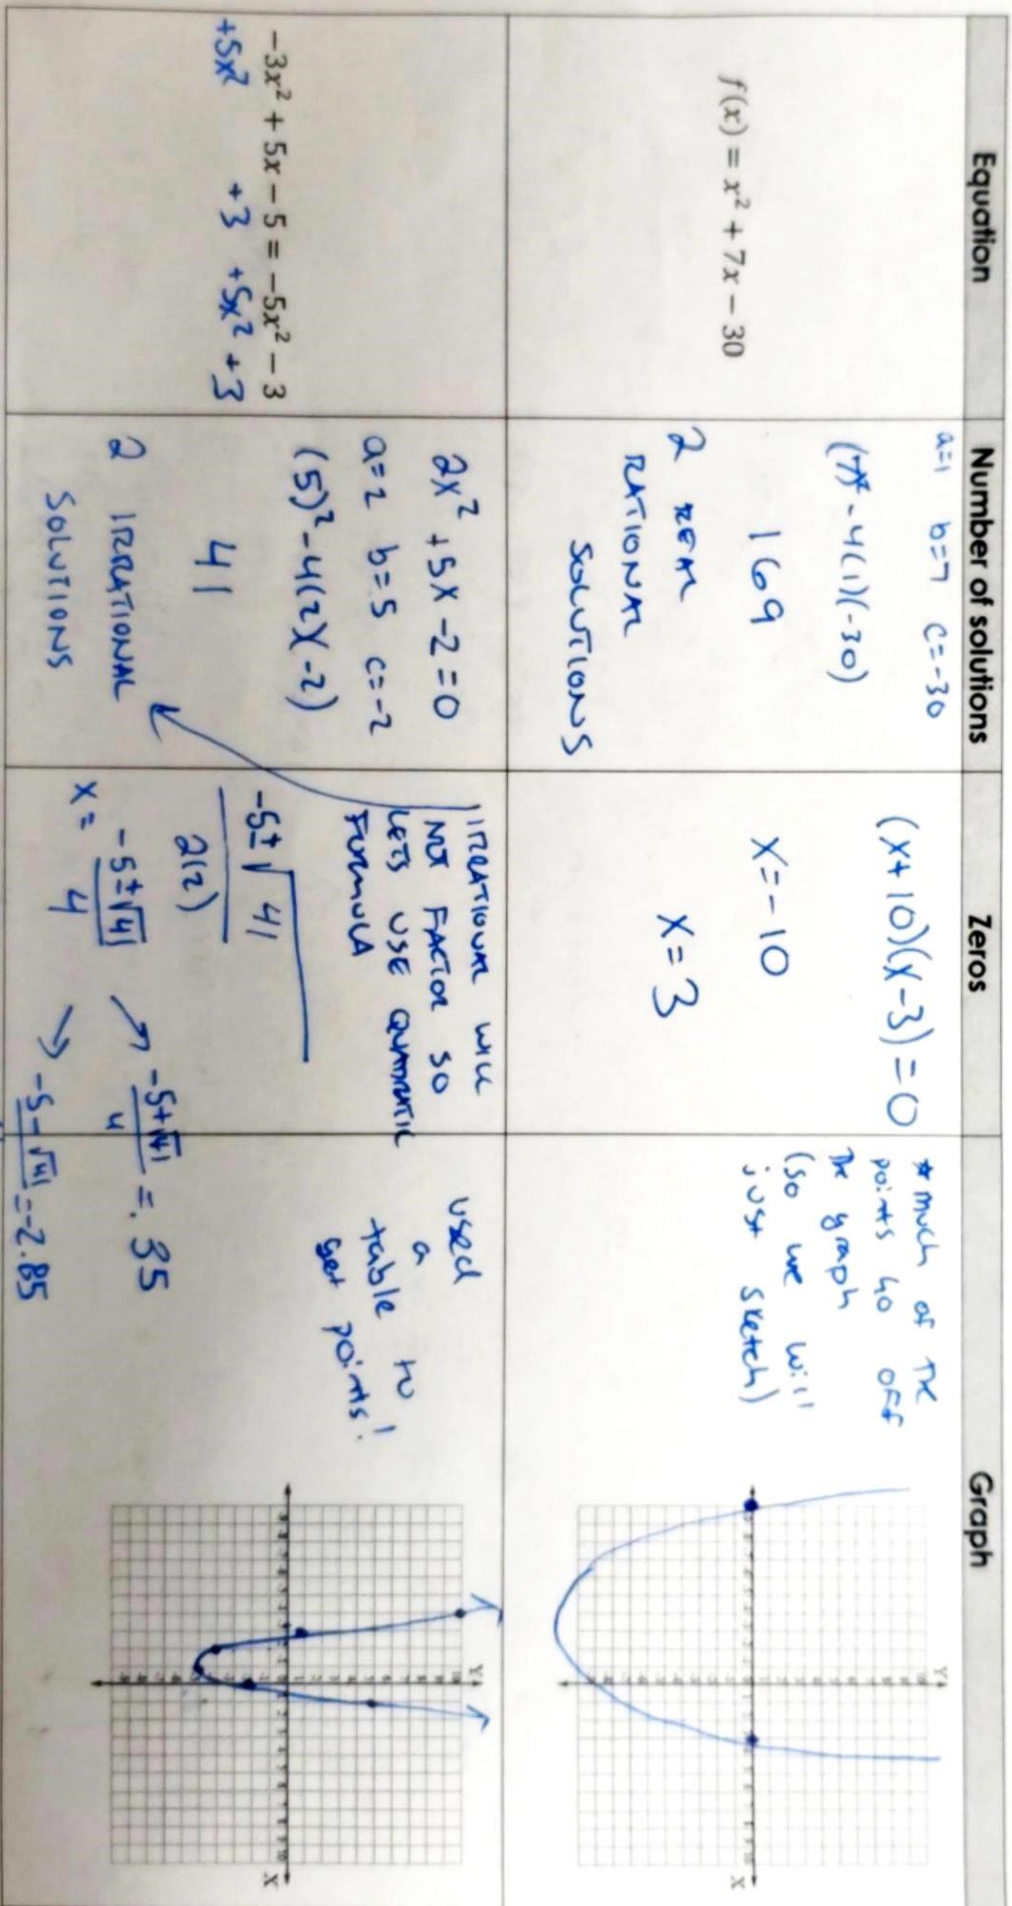 Equation
Number of solutions
Zeros
Graph
f(x) = x² + 7x − 30
a=1 b=7 c=-30
(7)² - 4(1)(-30)
169
2 REAL
RATIONAL
SOLUTIONS
(x+10)(x-3)=0
x=-10
x=3
* much of the
points go off
the graph
(so we will
just sketch)
Y
X
−3x² + 5x − 5 = −5x² − 3
+5x² +3 +5x² +3
2x² +5x -2=0
a=2 b=5 c=-2
(5)²-4(2)(-2)
41
2 IRRATIONAL
SOLUTIONS
IRRATIONAL WILL
NOT FACTOR SO
LETS USE QUADRATIC
FORMULA
-5±√41
2(2)
x = -5±√41
4
→ -5+√41
4
= .35
→ -5-√41
=-2.85
used
a
table to
get points!
Y
X